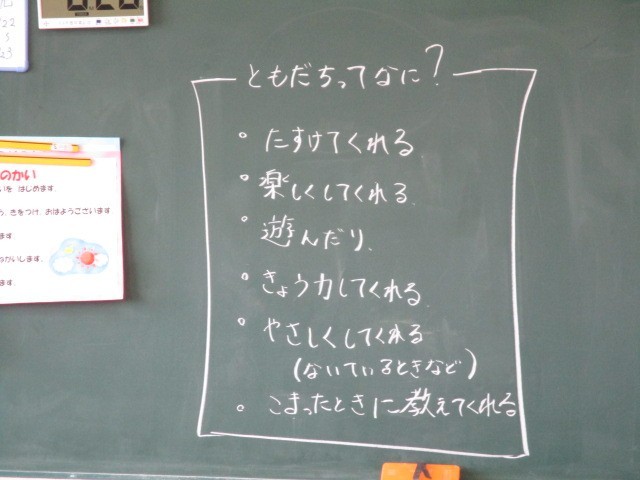 ともだちってなに?
。たすけてくれる
。楽しくしてくれる.
。遊んだり、
。きょう力してくれる.
。やさしくしてくれる
(ないているときなど)
。こまったときに教えてくれる
のかい
いを はじめます.
きをつけ. おはようございます
ます
かいします.
ます.